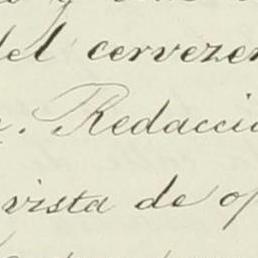 y
del cervezer
. Redacció
vista de op